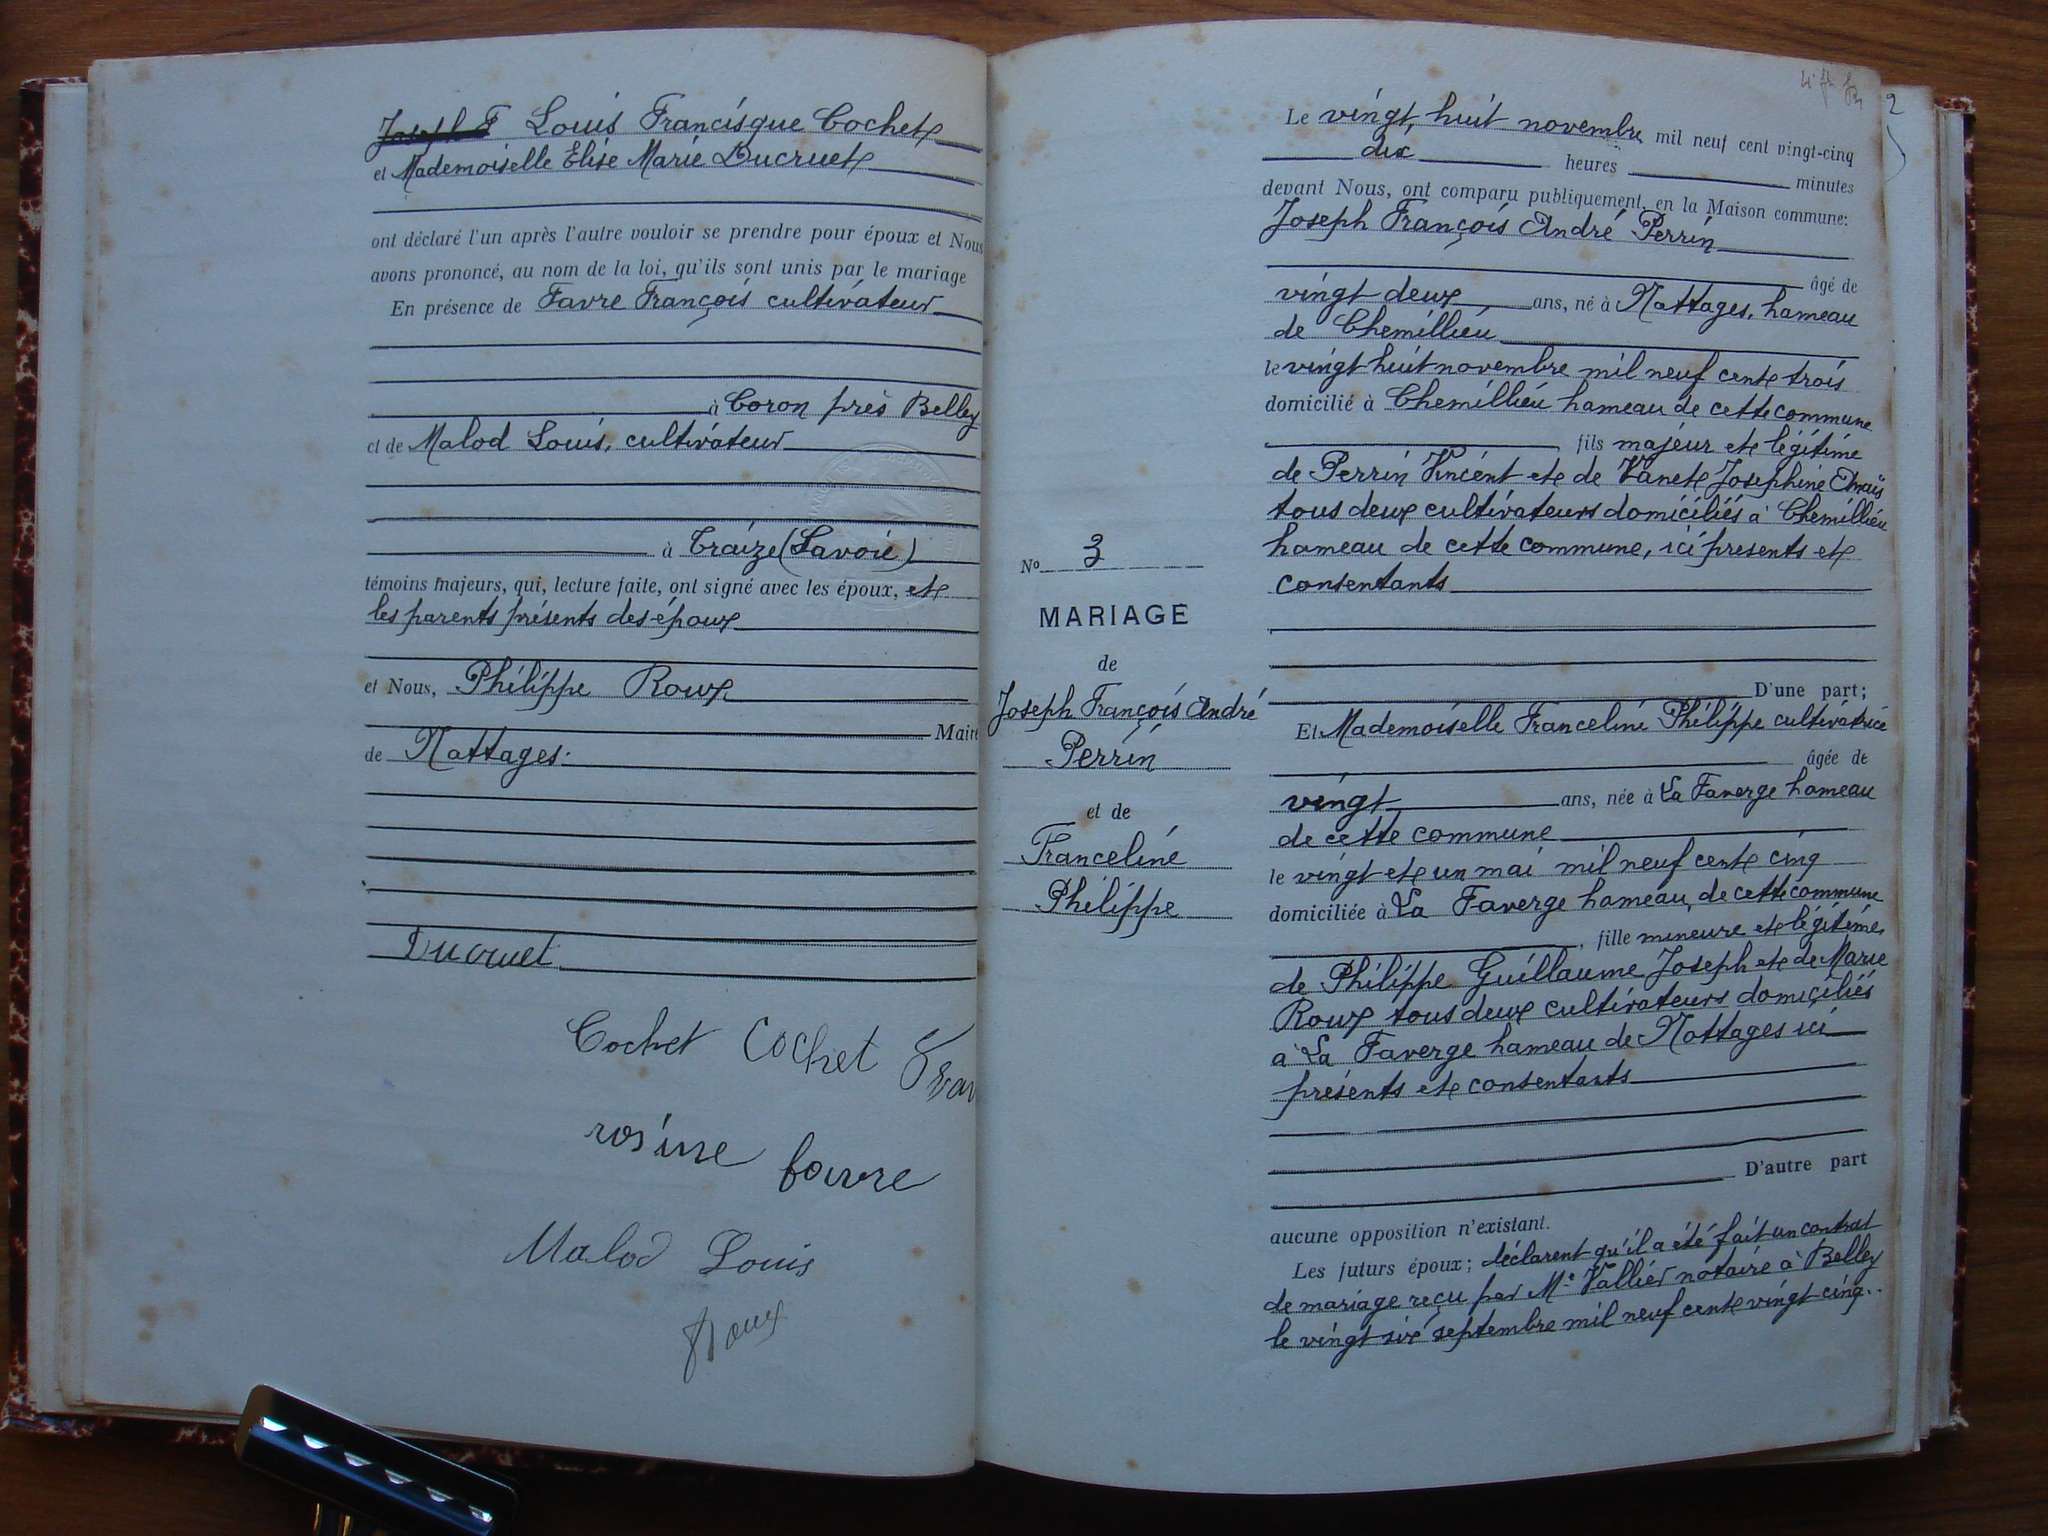 Joseph F Louis Francisque Cochet
et Mademoiselle Elise Marie Ducruet
ont déclaré l'un après l'autre vouloir se prendre pour époux et Nous
avons prononcé, au nom de la loi, qu'ils sont unis par le mariage
En présence de Favre François cultivateur
à Coron près Belley
et de Malod Louis, cultivateur
à Traize (Savoie)
témoins majeurs, qui, lecture faite, ont signé avec les époux, et
les parents présents des époux
et Nous, Philippe Roux
Maire
de Nattages.
Ducruet
Cochet Cochet
rosine favre
Malod Louis
Roux
2
Le vingt, huit novembre mil neuf cent vingt-cinq
dix heures minutes
devant Nous, ont comparu publiquement, en la Maison commune:
Joseph François André Perrin
âgé de
vingt deux ans, né à Nattages, hameau
de Chemillieu
le vingt huit novembre mil neuf cent trois
domicilié à Chemillieu hameau de cette commune
fils majeur et légitime
de Perrin Vincent et de Vanet Josephine Anaïs
tous deux cultivateurs domiciliés à Chemillieu
hameau de cette commune, ici presents et
consentants
D'une part;
Et Mademoiselle Franceline Philippe cultivatrice
âgée de
vingt ans, née à La Faverge hameau
de cette commune
le vingt et un mai mil neuf cent cinq
domiciliée à La Faverge hameau, de cette commune
, fille mineure et légitime
de Philippe Guillaume Joseph et de Marie
Roux tous deux cultivateurs domiciliés
à La Faverge hameau de Nattages ici
présents et consentants
D'autre part
aucune opposition n'existant.
Les futurs époux; déclarent qu'il a été fait un contrat
de mariage reçu par Me Vallier notaire à Belley
le vingt six septembre mil neuf cent vingt cinq..
No 3
MARIAGE
de
Joseph François André
Perrin
et de
Franceline
Philippe